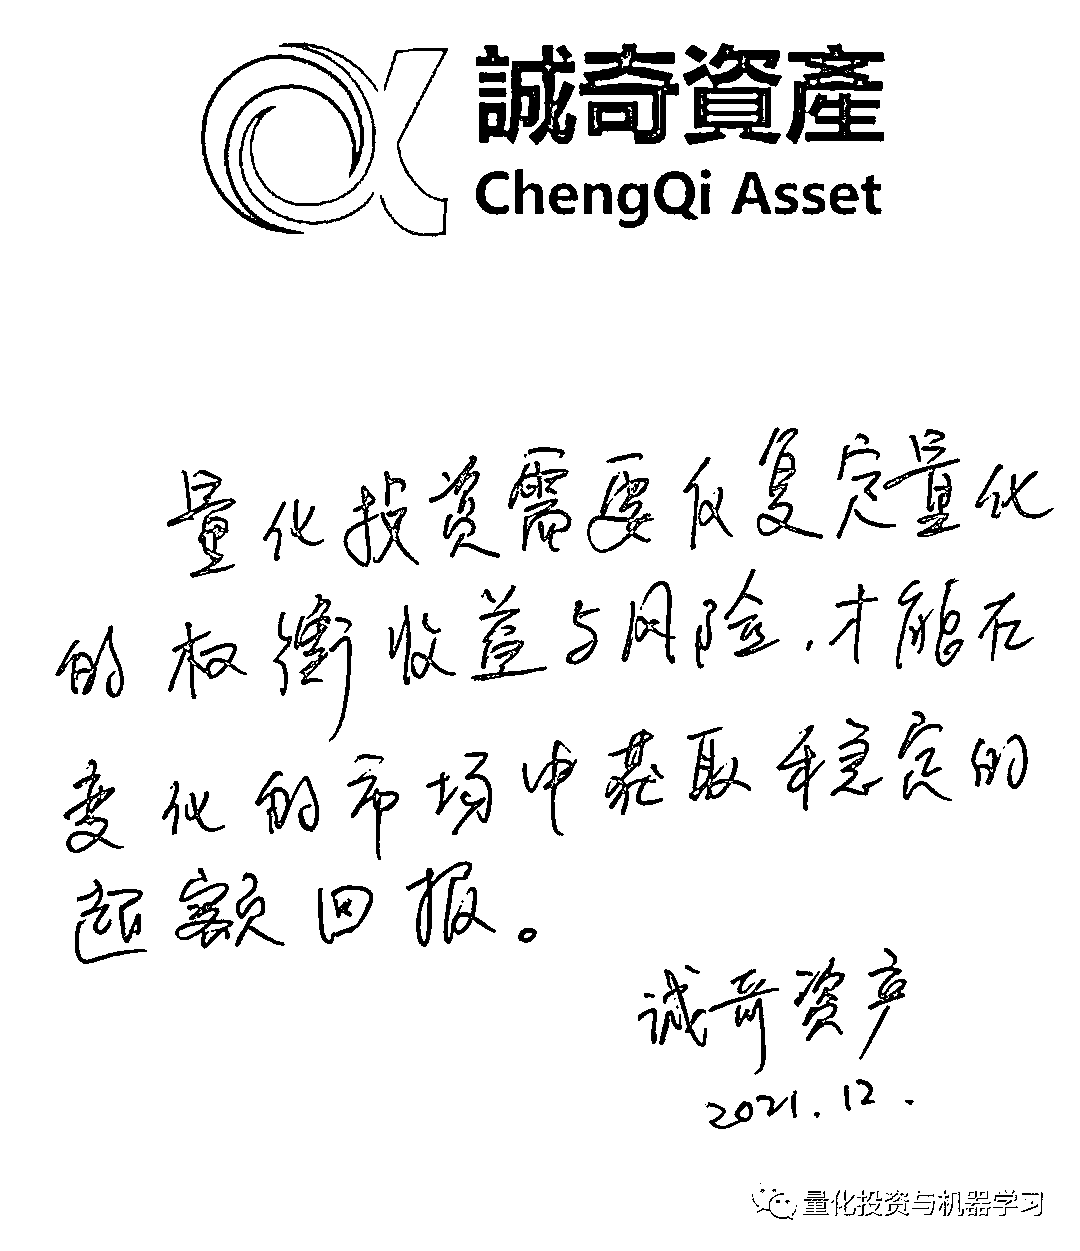 誠奇資產
ChengQi Asset
量化投资需要反复定量化
的权衡收益与风险,才能在
变化的市场中获取稳定的
超额回报。
诚奇资产
2021.12.
量化投资与机器学习